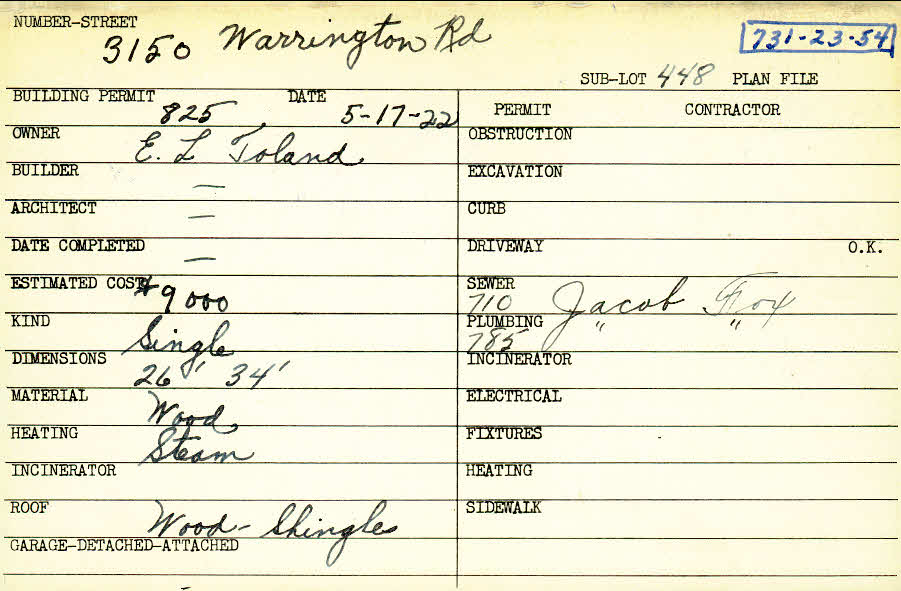 NUMBER-STREET
3150 Warrington Rd
731-23-54
SUB-LOT 448 PLAN FILE
BUILDING PERMIT 825 DATE 5-17-22
PERMIT CONTRACTOR
OWNER E. L Toland
OBSTRUCTION
BUILDER —
EXCAVATION
ARCHITECT —
CURB
DATE COMPLETED —
DRIVEWAY O.K.
ESTIMATED COST $9000
SEWER 710 Jacob Fox
KIND Single
PLUMBING 785 " "
DIMENSIONS 26' 34'
INCINERATOR
MATERIAL Wood
ELECTRICAL
HEATING Steam
FIXTURES
INCINERATOR
HEATING
ROOF Wood-Shingles
SIDEWALK
GARAGE-DETACHED-ATTACHED